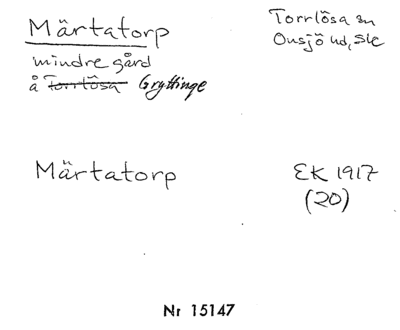 Märtatorp
Torrlösa sn
Onsjö hd, Sk
mindre gård
å Torrlösa Gryttinge
Märtatorp
EK 1917
(20)
Nr 15147